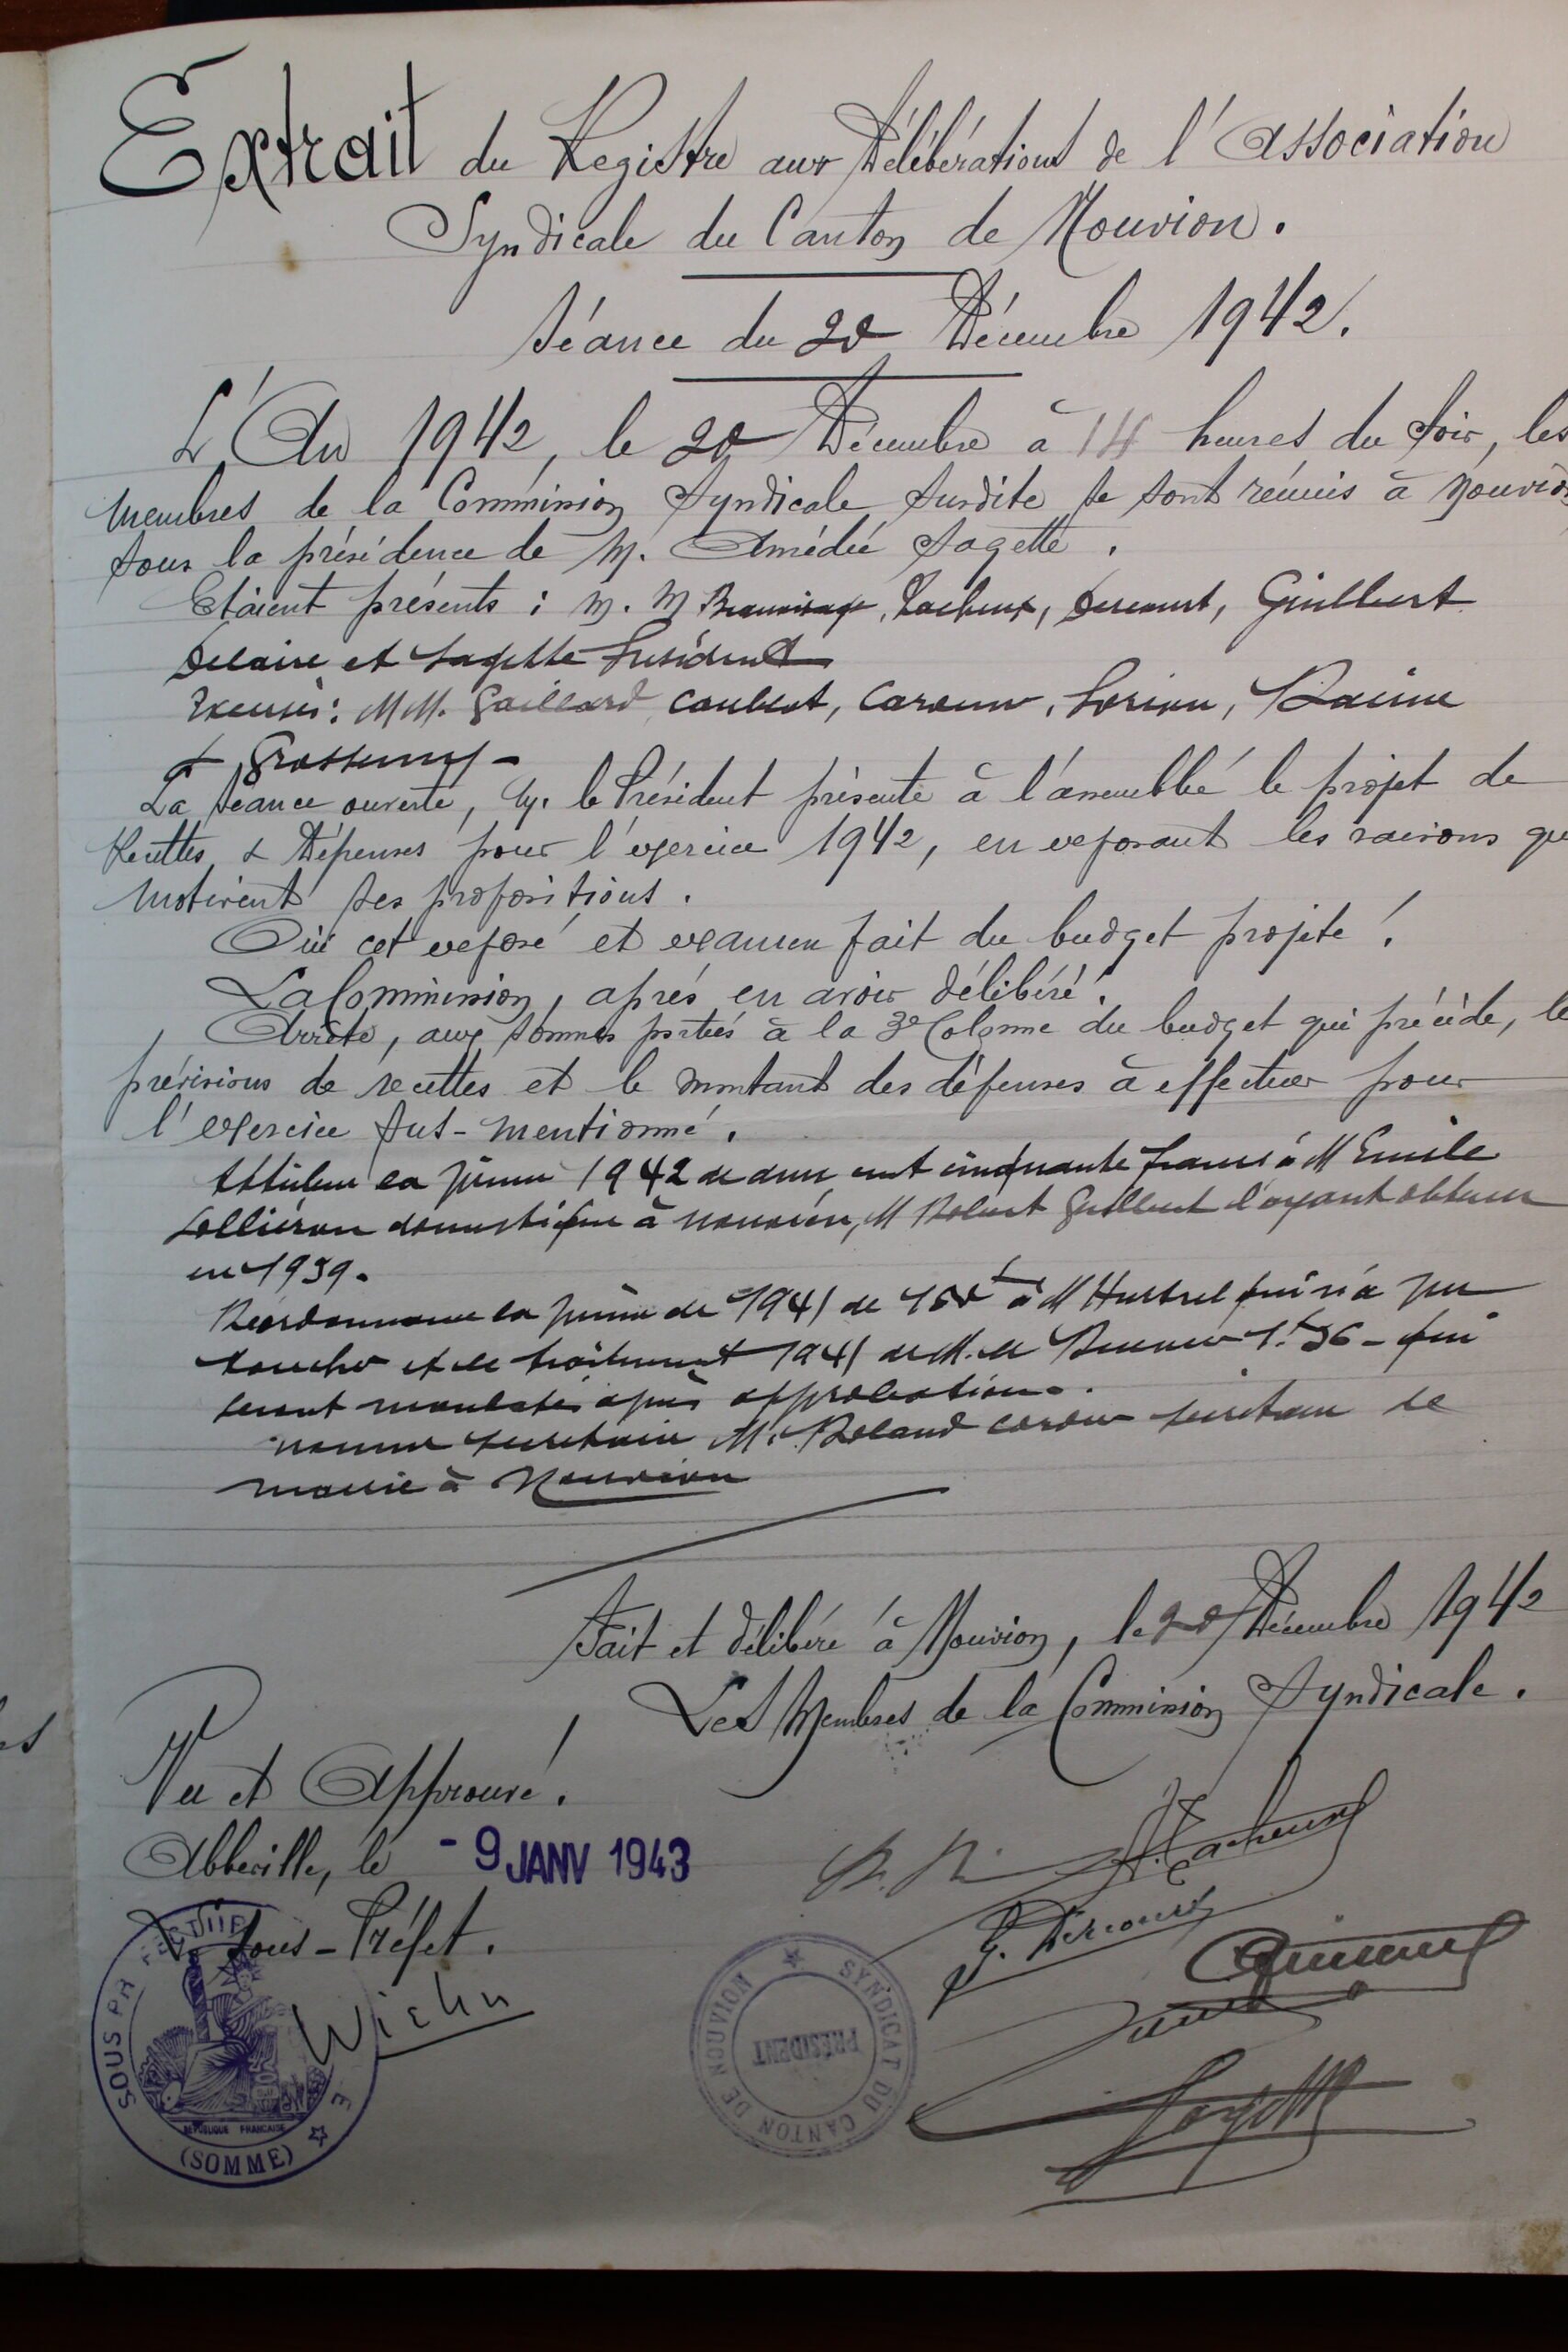 Extrait du Registre aux Délibérations de l'Association
Syndicale du Canton de Nouvion.
Séance du 20 Décembre 1942.
L'An 1942, le 20 Décembre à 14 heures du soir, les
Membres de la Commission Syndicale susdite se sont réunis à Nouvion
sous la présidence de M. Amédée Sagette.
Etaient présents : M. M , Lacheux, Dercourt, Guilbert
Delaire et Sagette Président
Excusés : MM. Gaillard, Caubert, Caroux, Lorion, Racine
&
La séance ouverte, M. le Président présente à l'assemblée le projet de
Recettes & Dépenses pour l'exercice 1942, en exposant les raisons qui
motivent ses propositions.
Ouï cet exposé et examen fait du budget projeté,
La Commission, après en avoir délibéré,
Arrête, aux sommes portées à la 3e Colonne du budget qui précède, les
prévisions de recettes et le montant des dépenses à effectuer pour
l'exercice sus-mentionné.
Attribue la prime 1942 de deux cent cinquante francs à M Emile
domestique à Nouvion, M Robert Guilbert l'ayant obtenue
en 1939.
Réordonnance la prime de 1941 de à M qui n'a pu
toucher et le traitement 1941 de M. le qui
seront mandatés après approbation.
Nomme secrétaire M. Roland Caroux secrétaire de
mairie à Nouvion
Fait et délibéré à Nouvion, le 20 Décembre 1942
Les Membres de la Commission Syndicale.
Vu et Approuvé.
Abbeville, le - 9 JANV 1943
Le Sous-Préfet.
SOUS PRÉFECTURE
RÉPUBLIQUE FRANÇAISE
(SOMME)
SYNDICAT DU CANTON DE NOUVION
PRÉSIDENT
Lacheux
G. Dercourt
Sagette